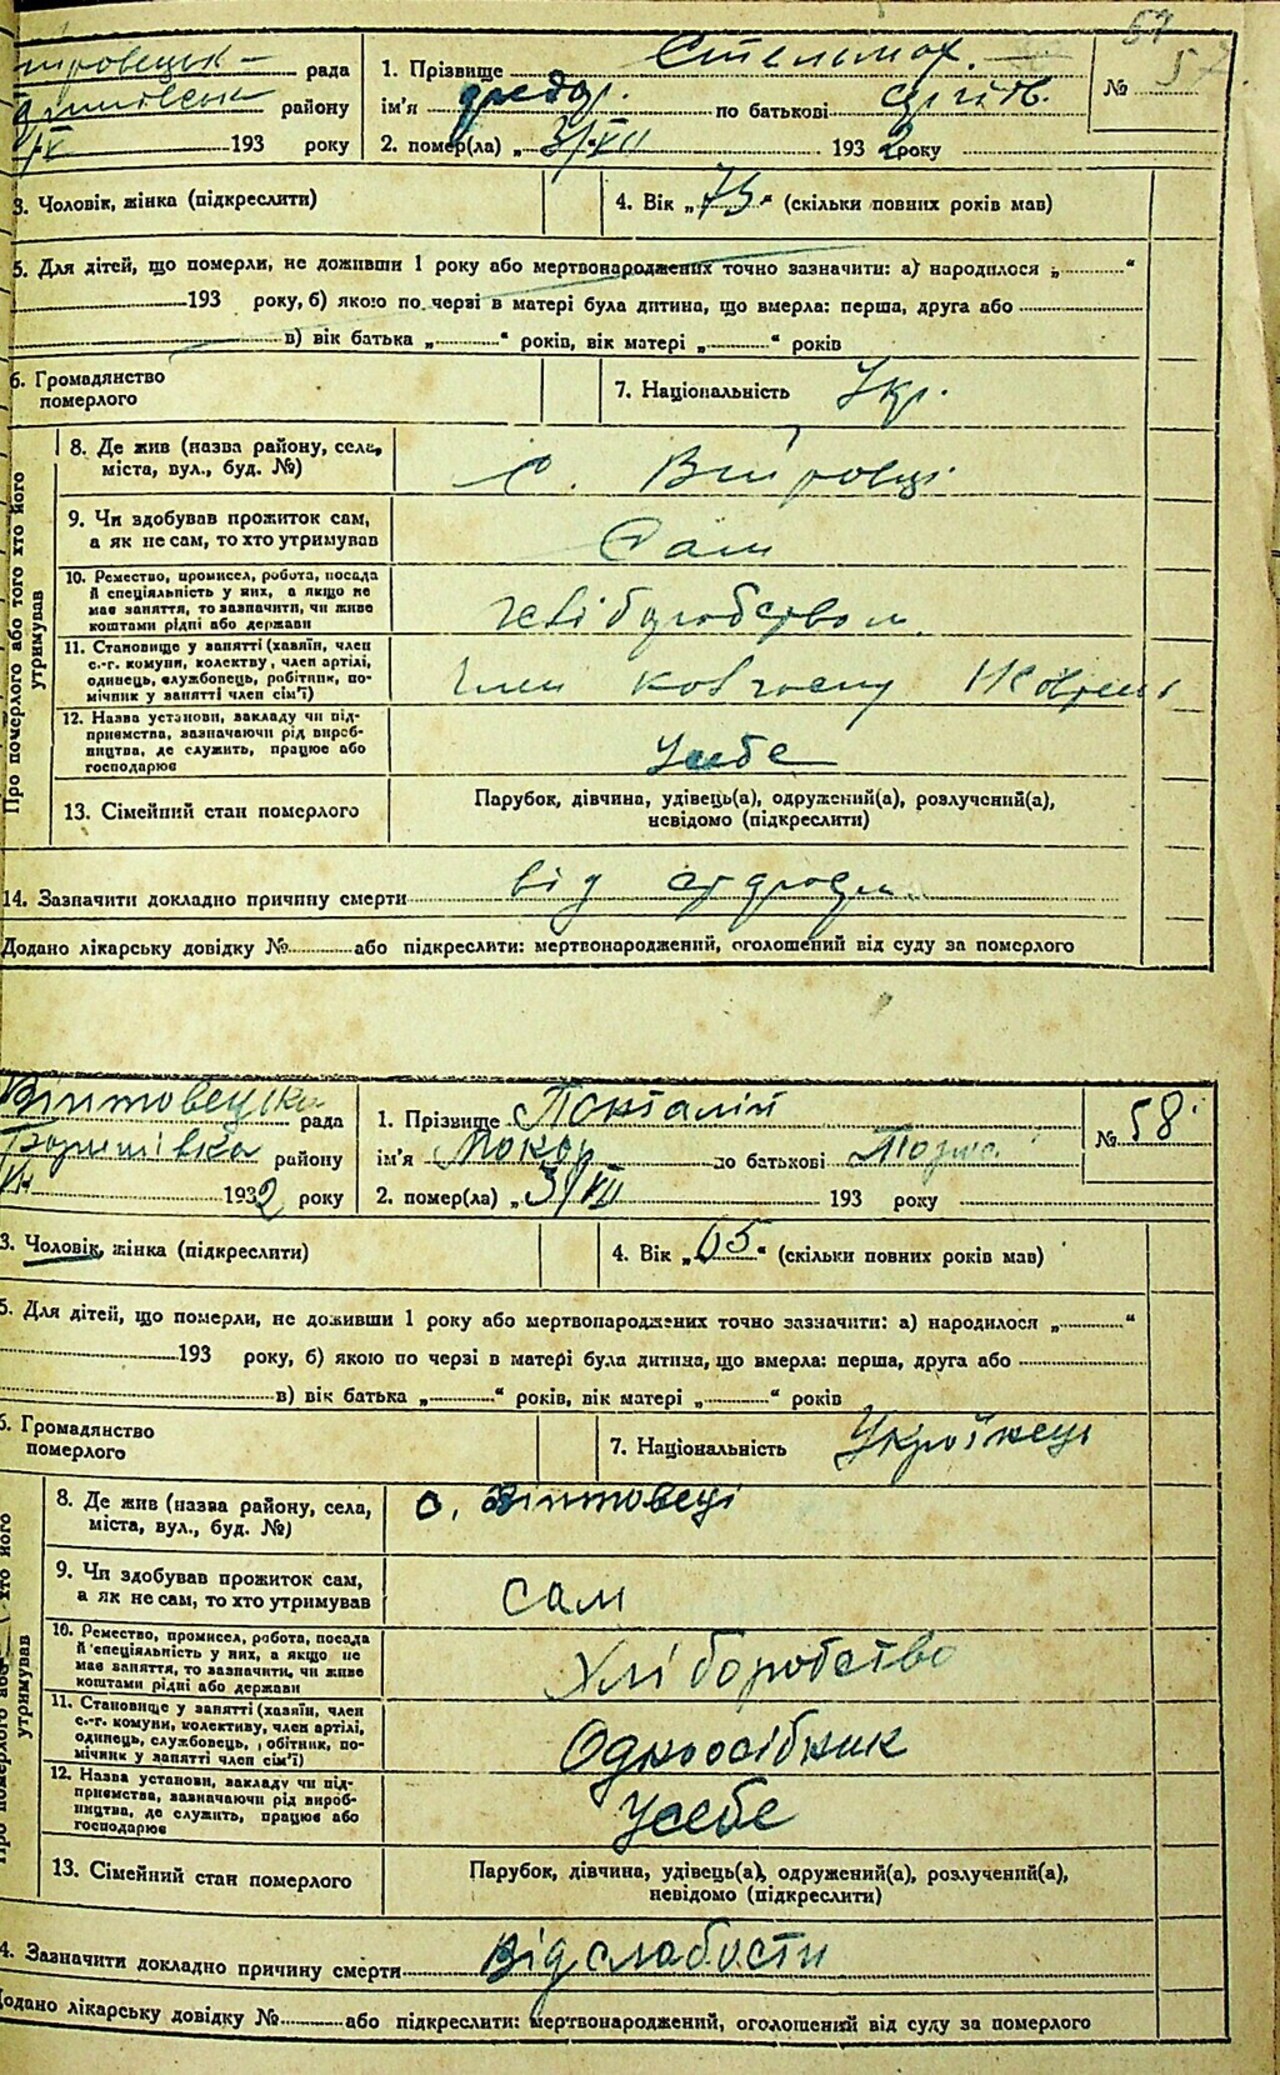 57
рада
1. Прізвище Стельмах.
№ 57
району
ім'я Федор. по батькові Сергіїв.
193 року
2. помер(ла) „ 3/VII 1932 року
3. Чоловік, жінка (підкреслити)
4. Вік „75“ (скільки повних років мав)
5. Для дітей, що померли, не доживши 1 року або мертвонароджених точно зазначити: а) народилося „ “
193 року, б) якою по черзі в матері була дитина, що вмерла: перша, друга або
в) вік батька „ “ років, вік матері „ “ років
6. Громадянство
померлого
7. Національність Укр.
Про померлого або того хто його
утримував
8. Де жив (назва району, села,
міста, вул., буд. №)
с.
9. Чи здобував прожиток сам,
а як не сам, то хто утримував
Сам
10. Ремество, промисел, робота, посада
й спеціяльність у них, а якщо не
має заняття, то зазначити, чи живе
коштами рідні або держави
хліборобством
11. Становище у занятті (хазяїн, член
с.-г. комуни, колективу, член артілі,
одинець, службовець, робітник, по-
мічник у занятті член сім'ї)
член колгоспу
12. Назва установи, закладу чи під-
приємства, зазначаючи рід вироб-
ництва, де служить, працює або
господарює
Усебе
13. Сімейний стан померлого
Парубок, дівчина, удівець(а), одружений(а), розлучений(а),
невідомо (підкреслити)
14. Зазначити докладно причину смерти від
Додано лікарську довідку № або підкреслити: мертвонароджений, оголошений від суду за померлого
рада
1. Прізвище
№ 58
району
ім'я Мокар по батькові
1932 року
2. помер(ла) „ 3/VII 193 року
3. Чоловік, жінка (підкреслити)
4. Вік „65“ (скільки повних років мав)
5. Для дітей, що померли, не доживши 1 року або мертвонароджених точно зазначити: а) народилося „ “
193 року, б) якою по черзі в матері була дитина, що вмерла: перша, друга або
в) вік батька „ “ років, вік матері „ “ років
6. Громадянство
померлого
7. Національність Українець
утримував
8. Де жив (назва району, села,
міста, вул., буд. №)
с. Вінтовеці
9. Чи здобував прожиток сам,
а як не сам, то хто утримував
сам
10. Ремество, промисел, робота, посада
й спеціяльність у них, а якщо не
має заняття, то зазначити, чи живе
коштами рідні або держави
Хліборобство
11. Становище у занятті (хазяїн, член
с.-г. комуни, колективу, член артілі,
одинець, службовець, робітник, по-
мічник у занятті член сім'ї)
Одноосібник
12. Назва установи, закладу чи під-
приємства, зазначаючи рід вироб-
ництва, де служить, працює або
господарює
Усебе
13. Сімейний стан померлого
Парубок, дівчина, удівець(а), одружений(а), розлучений(а),
невідомо (підкреслити)
4. Зазначити докладно причину смерти Від слабости
Додано лікарську довідку № або підкреслити: мертвонароджений, оголошений від суду за померлого